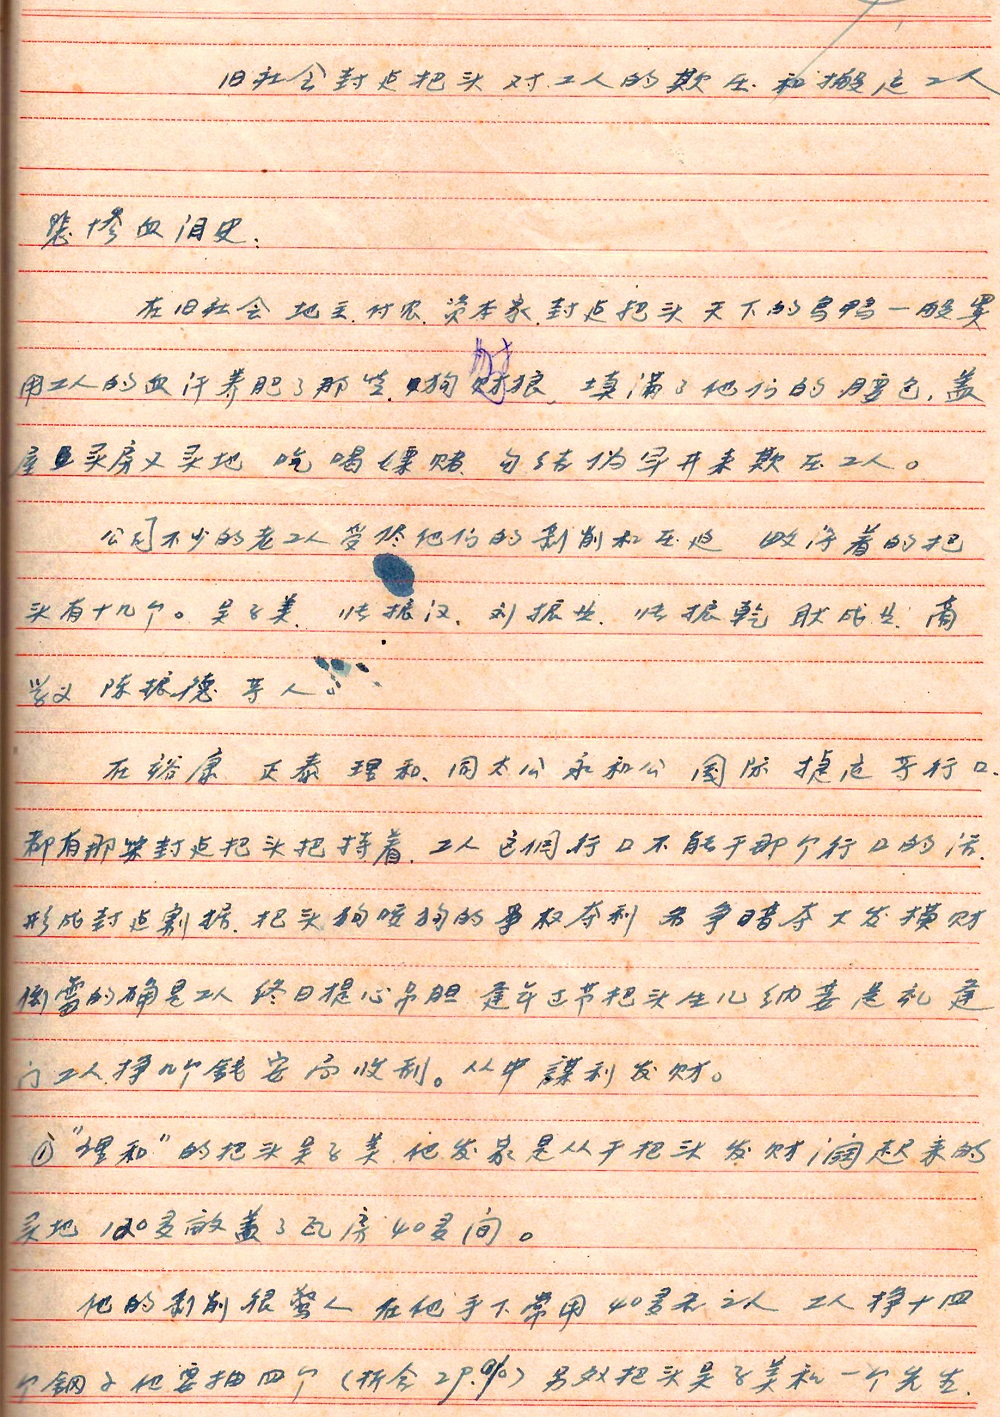 旧社会封点把头对工人的欺压.和搬运工人
悲惨血泪史.
在旧社会 地主.付农.资本家.封点把头 天下的乌鸦一般黑
用工人的血汗养肥了那些 狗 豺狼、填满了他们的腰包.盖
屋又买房又买地 吃喝嫖赌 勾结伪军井来欺压工人。
公司不少的老工人受尽他们的剥削和压迫 的把
头有十几个。吴子美. 张振汉. 刘振生. 张振乾 耿成生. 商
学义 陈振德 等人。
在裕康 正泰 理和、同太公 永和公 国际 捷运 等行口.
都有那些封点把头把持着. 工人这個行口不能干那个行口的活.
形成封点割据. 把头狗咬狗的争权夺利 名争暗夺大发横财
倒霉的确是工人 终日提心吊胆 逢年过节把头生儿纳妾送礼
工人.挣几个钱 收刮。从中謀利发财。
①"理和"的把头吴子美 他发家是从干把头 发财 阔起来的
买地 120多亩盖了瓦房40多间。
他的剥削很驚人 在他手下常用40多名工人 工人挣十四
个銅子他要抽四个（折合29.%）另外把头吴子美和一个先生.